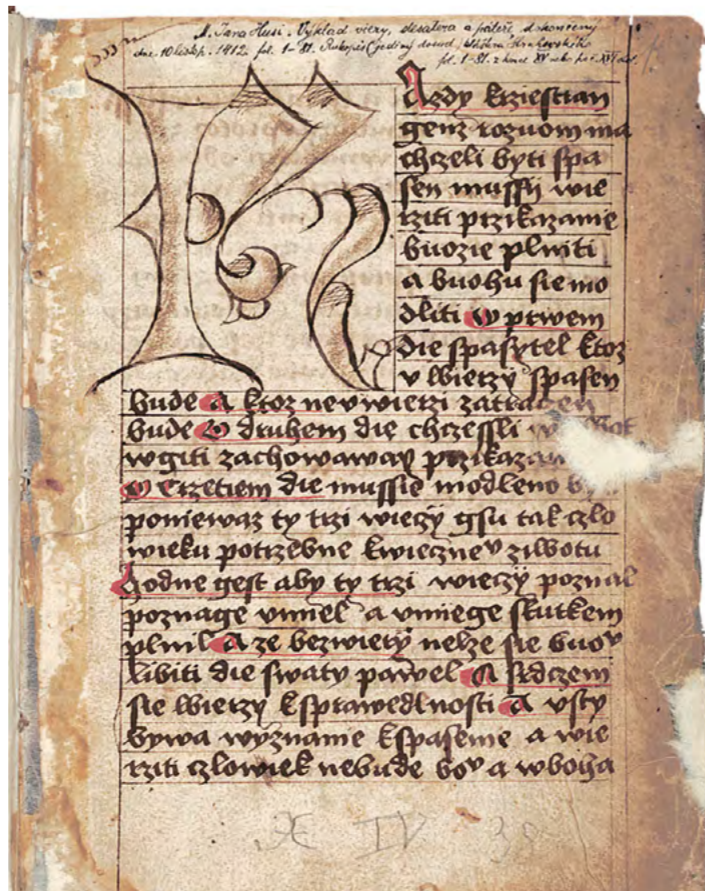 M. Jana Husi. Výklad viery, desatera a páteře, dokončený
dne 10 listop. 1412. fol. 1–81. Rukopis (jediný dosud)
fol. 1–81. z konce XV neb poč. XVI stol.
K
Azdy krziestian
genz rozuom ma
chzeli byti spa
sen mussy wie
rziti przikazanie
buozie plniti
a buohu sie mo
dliti O prwem
die spasytel ktoz
v wierzy spasen
bude A ktoz nevwierzi zatracen
bude O druhem die chzessli
wgiti zachowaway przikazanie
O trzetiem die mussie modleno
poniewaz ty trzi wieczy gsu tak czlo
wieku potrzebne kwiecznev ziwotu
hodne gest aby ty trzi wieczy poznal
poznage vmiel a vmiege skutkem
plnil A ze bezwiery nelze sie buov
libiti die swaty pawel A srdczem
sie wierzy ksprawedlnosti A vsty
bywa wyznanie kspasenie a wie
rziti czlowiek nebude bov a wboha
IV